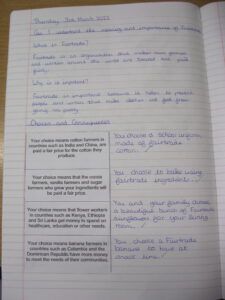 Thursday 3rd March 2022
Can I understand the meaning and importance of Fairtrade?
What is Fairtrade?
Fairtrade is an organisation that makes sure farmers
and workers around the world are treated and paid
fairly.
Why is it important?
Fairtrade is important because it helps to prevent
people and
Choices and Consequences
Your choice means cotton farmers in
countries such as India and China, are
paid a fair price for the cotton they
produce.
You choose a school uniform
made of fairtrade
cotton.
Your choice means that the cocoa
farmers, vanilla farmers and sugar
farmers who grow your ingredients will
be paid a fair price.
You choose to bake using
fairtrade ingredients.
Your choice means that flower workers
in countries such as Kenya, Ethiopia
and Sri Lanka get money to spend on
healthcare, education or other needs.
You and your family choose
a beautiful bunch of Fairtrade
sunflowers for your
mum.
Your choice means banana farmers in
countries such as Colombia and the
Dominican Republic have more money
to meet the needs of their communities.
You choose a Fairtrade
banana to have at
snack time.